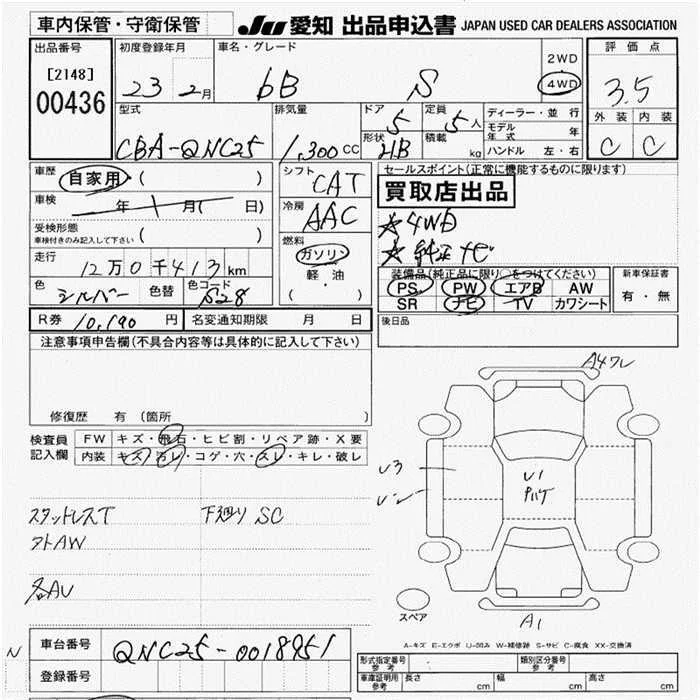 車内保管・守衛保管 JU 愛知 出品申込書 JAPAN USED CAR DEALERS ASSOCIATION
出品番号 初度登録年月 車名・グレード 2WD 評価点
[2148] 23 2月 bB S 4WD 3.5
00436
型式 排気量 ドア 定員 ディーラー・並行 外装 内装
5 5人 モデル年式 年
CBA-QNC25 1,300cc 形状 HB 積載 kg ハンドル 左・右 C C
車歴 自家用( ) シフト CAT セールスポイント(正常に機能するものに限ります)
買取店出品
車検 年 月( 日) 冷房 AAC ☆4WD
受検形態 ( )
車検付きのみ記入して下さい 燃料 ガソリン ☆純正ナビ
走行 12万0千413km 軽油 装備品(純正品に限り○をつけてください) 新車保証書
PS PW エアB AW 有・無
色 シルバー 色替 色コード S28 ( ・ ) SR ナビ TV カワシート
R券 10,190円 名変通知期限 月 日 後日品
注意事項申告欄(不具合内容等は具体的に記入して下さい)
A4ワレ
修復歴 有 (箇所 )
検査員記入欄 FW キズ・飛石・ヒビ割・リペア跡・X要
内装 キズ・汚レ・コゲ・穴・スレ・キレ・破レ
U3 U1
U
スタッドレスT 下廻り SC
AW
AU
スペア A1
N 車台番号 QNC25-0018951
A-キズ E-エクボ U-凹み W-補修跡 S-サビ C-腐食 XX-交換済
登録番号 形式指定番号 参考 類別区分番号 参考
車庫証明用 参考 長さ cm 幅 cm 高さ cm